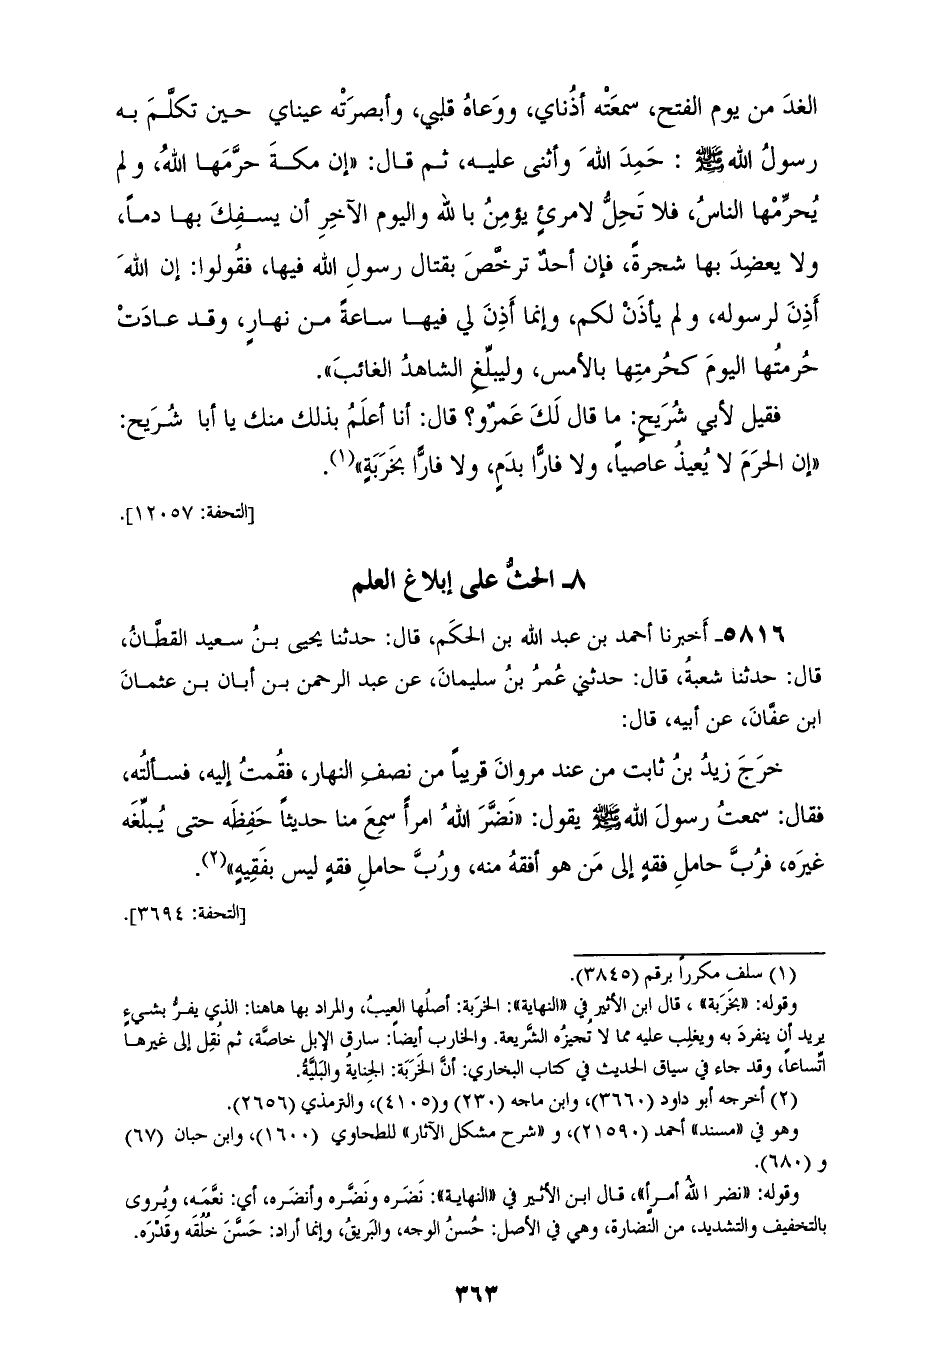 الغدَ من يوم الفتح، سمعَتْه أذُناي، ووَعاهُ قلبي، وأبصرَتْه عيناي حين تكلَّمَ به
رسولُ الله ﷺ : حَمِدَ اللهَ وأثنى عليه، ثم قال: «إن مكةَ حرَّمَها اللهُ، ولم
يُحرِّمْها الناسُ، فلا تَحِلُّ لامرئٍ يؤمِنُ بالله واليوم الآخِرِ أن يسفِكَ بها دماً،
ولا يعضِدَ بها شجرةً، فإن أحدٌ ترخَّصَ بقتال رسولِ الله فيها، فقُولوا: إن اللهَ
أَذِنَ لرسوله، ولم يأذَنْ لكم، وإنما أَذِنَ لي فيها ساعةً من نهارٍ، وقد عادَتْ
حُرمتُها اليومَ كحُرمتِها بالأمس، وليبلِّغِ الشاهدُ الغائبَ».
فقيل لأبي شُرَيحٍ: ما قال لَكَ عَمرٌو؟ قال: أنا أعلَمُ بذلك منك يا أبا شُرَيح:
«إن الحرَمَ لا يُعيذُ عاصياً، ولا فارًّا بدَمٍ، ولا فارًّا بخَرَبَةٍ»(١).
[التحفة: ١٢٠٥٧].
٨ـ الحثُّ على إبلاغ العلم
٥٨١٦ـ أَخبرنا أحمد بن عبد الله بن الحكَم، قال: حدثنا يحيى بنُ سعيد القطَّانُ،
قال: حدثنا شعبةُ، قال: حدثني عُمرُ بنُ سليمانَ، عن عبد الرحمن بن أبان بن عثمانَ
ابن عفَّانَ، عن أبيه، قال:
خرَجَ زيدُ بنُ ثابت من عند مروانَ قريباً من نصفِ النهار، فقُمتُ إليه، فسألتُه،
فقال: سمعتُ رسولَ الله ﷺ يقول: «نَضَّرَ اللهُ امرأً سمِعَ منا حديثاً حَفِظَه حتى يُبلِّغَه
غيرَه، فرُبَّ حاملِ فقهٍ إلى مَن هو أفقهُ منه، ورُبَّ حاملِ فقهٍ ليس بفَقِيهٍ»(٢).
[التحفة: ٣٦٩٤].
(١) سلف مكرراً برقم (٣٨٤٥).
وقوله: «بخَرَبة» ، قال ابن الأثير في «النهاية»: الخرَبة: أصلُها العيبُ، والمراد بها هاهنا: الذي يفرُّ بشيءٍ
يريد أن ينفردَ به ويغلِب عليه مما لا تُجيزُه الشَّريعة. والخارب أيضاً: سارق الإبل خاصَّة، ثم نُقِل إلى غيرها
اتِّساعاً، وقد جاء في سياق الحديث في كتاب البخاري: أنَّ الخَرَبَة: الجِنايةُ والبَليَّةُ.
(٢) أخرجه أبو داود (٣٦٦٠)، وابن ماجه (٢٣٠) و(٤١٠٥)، والترمذي (٢٦٥٦).
وهو في «مسند» أحمد (٢١٥٩٠)، و «شرح مشكل الآثار» للطحاوي (١٦٠٠)، وابن حبان (٦٧)
و (٦٨٠).
وقوله: «نضر اللهُ أمرأً»، قال ابن الأثير في «النهاية»: نَضَره ونَضَّره وأنضَره، أي: نعَّمَه، ويُروى
بالتخفيف والتشديد، من النَّضارة، وهي في الأصل: حُسنُ الوجه، والبَريقُ، وإنما أراد: حَسَّنَ خُلُقَه وقَدْرَه.
٣٦٣